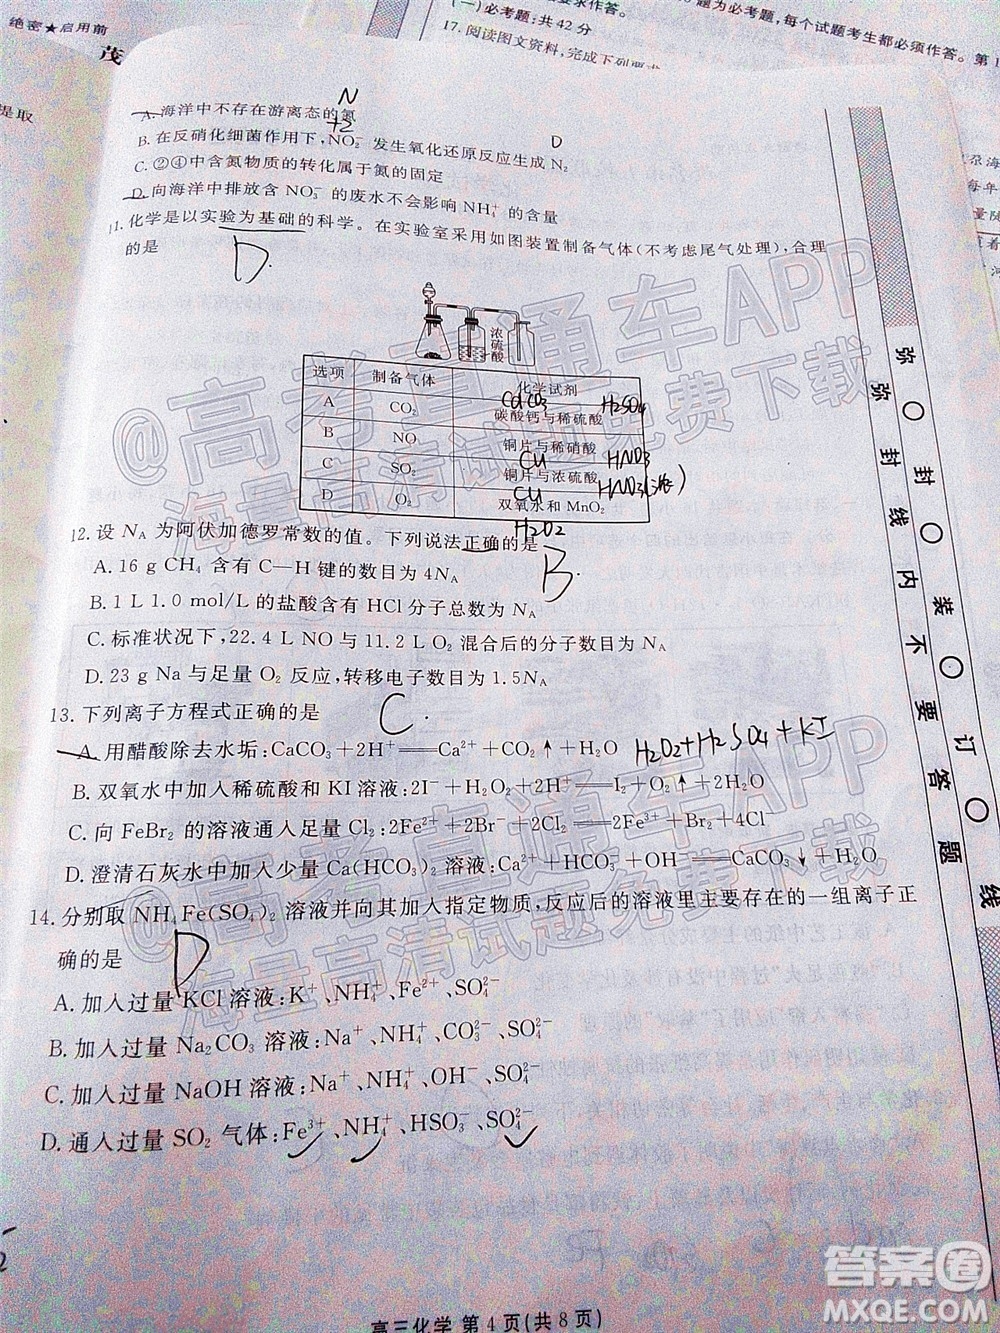 绝密★启用前
茂
提取
(一)必考题:共42分
17.阅读图文资料,完成下列要求
题为必考题,每个试题考生都必须作答。第1
A.海洋中不存在游离态的氮
N
+2
B.在反硝化细菌作用下,NO₂⁻ 发生氧化还原反应生成 N₂
D
C.②④中含氮物质的转化属于氮的固定
D.向海洋中排放含 NO₃⁻ 的废水不会影响 NH₄⁺ 的含量
11.化学是以实验为基础的科学。在实验室采用如图装置制备气体(不考虑尾气处理),合理
的是
D.
浓硫酸
选项 制备气体 化学试剂
A CO₂ 碳酸钙与稀硫酸
CaCO₃ H₂SO₄
B NO 铜片与稀硝酸
Cu HNO₃
C SO₂ 铜片与浓硫酸
Cu HNO₃(浓)
D O₂ 双氧水和 MnO₂
H₂O₂
12.设 N_A 为阿伏加德罗常数的值。下列说法正确的是
B.
A.16 g CH₄ 含有 C—H 键的数目为 4N_A
B.1 L 1.0 mol/L 的盐酸含有 HCl 分子总数为 N_A
C.标准状况下,22.4 L NO 与 11.2 L O₂ 混合后的分子数目为 N_A
D.23 g Na 与足量 O₂ 反应,转移电子数目为 1.5N_A
13.下列离子方程式正确的是
C.
A.用醋酸除去水垢:CaCO₃+2H⁺══Ca²⁺+CO₂↑+H₂O
H₂O₂+H₂SO₄+KI
B.双氧水中加入稀硫酸和 KI 溶液:2I⁻+H₂O₂+2H⁺══I₂+O₂↑+2H₂O
C.向 FeBr₂ 的溶液通入足量 Cl₂:2Fe²⁺+2Br⁻+2Cl₂══2Fe³⁺+Br₂+4Cl⁻
D.澄清石灰水中加入少量 Ca(HCO₃)₂ 溶液:Ca²⁺+HCO₃⁻+OH⁻══CaCO₃↓+H₂O
14.分别取 NH₄Fe(SO₄)₂ 溶液并向其加入指定物质,反应后的溶液里主要存在的一组离子正
确的是
D
A.加入过量 KCl 溶液:K⁺、NH₄⁺、Fe²⁺、SO₄²⁻
B.加入过量 Na₂CO₃ 溶液:Na⁺、NH₄⁺、CO₃²⁻、SO₄²⁻
C.加入过量 NaOH 溶液:Na⁺、NH₄⁺、OH⁻、SO₄²⁻
D.通入过量 SO₂ 气体:Fe³⁺、NH₄⁺、HSO₃⁻、SO₄²⁻
高三化学 第 4 页(共 8 页)
弥 封 线 内 不 要 答 题
弥 封 装 订 线
@高考直通车APP
海量高清试题免费下载
@高考直通车APP
海量高清试题免费下载
答案圈
MXQE.COM